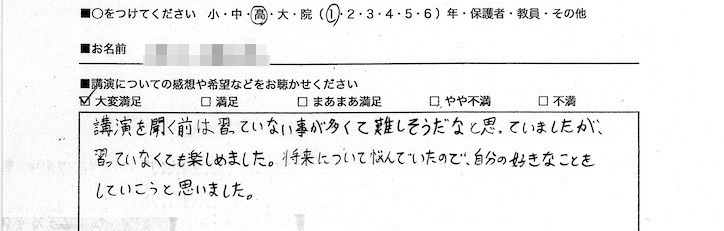 ■○をつけてください 小・中・高・大・院（1・2・3・4・5・6）年・保護者・教員・その他
■お名前
■講演についての感想や希望などをお聴かせください
☑大変満足 □満足 □まあまあ満足 □やや不満 □不満
講演を聞く前は習っていない事が多くて難しそうだなと思っていましたが、
習っていなくても楽しめました。将来について悩んでいたので、自分の好きなことを
していこうと思いました。